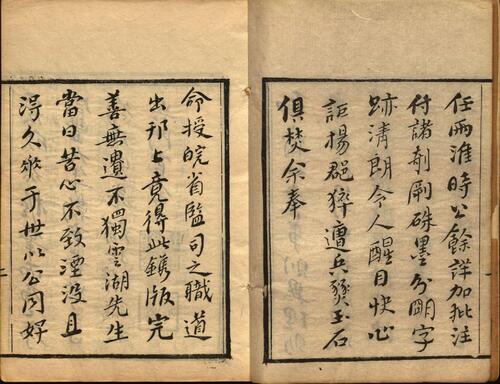 任兩淮時公餘詳加批注
付諸剞劂硃墨分明字
跡清朗令人醒目快心
詎揚郡猝遭兵燹玉石
俱焚余奉
命授皖省監司之職道
出邗上竟得此鐫版完
善無遺不獨雲湖先生
當日苦心不致湮沒且
得久傳于世以公同好